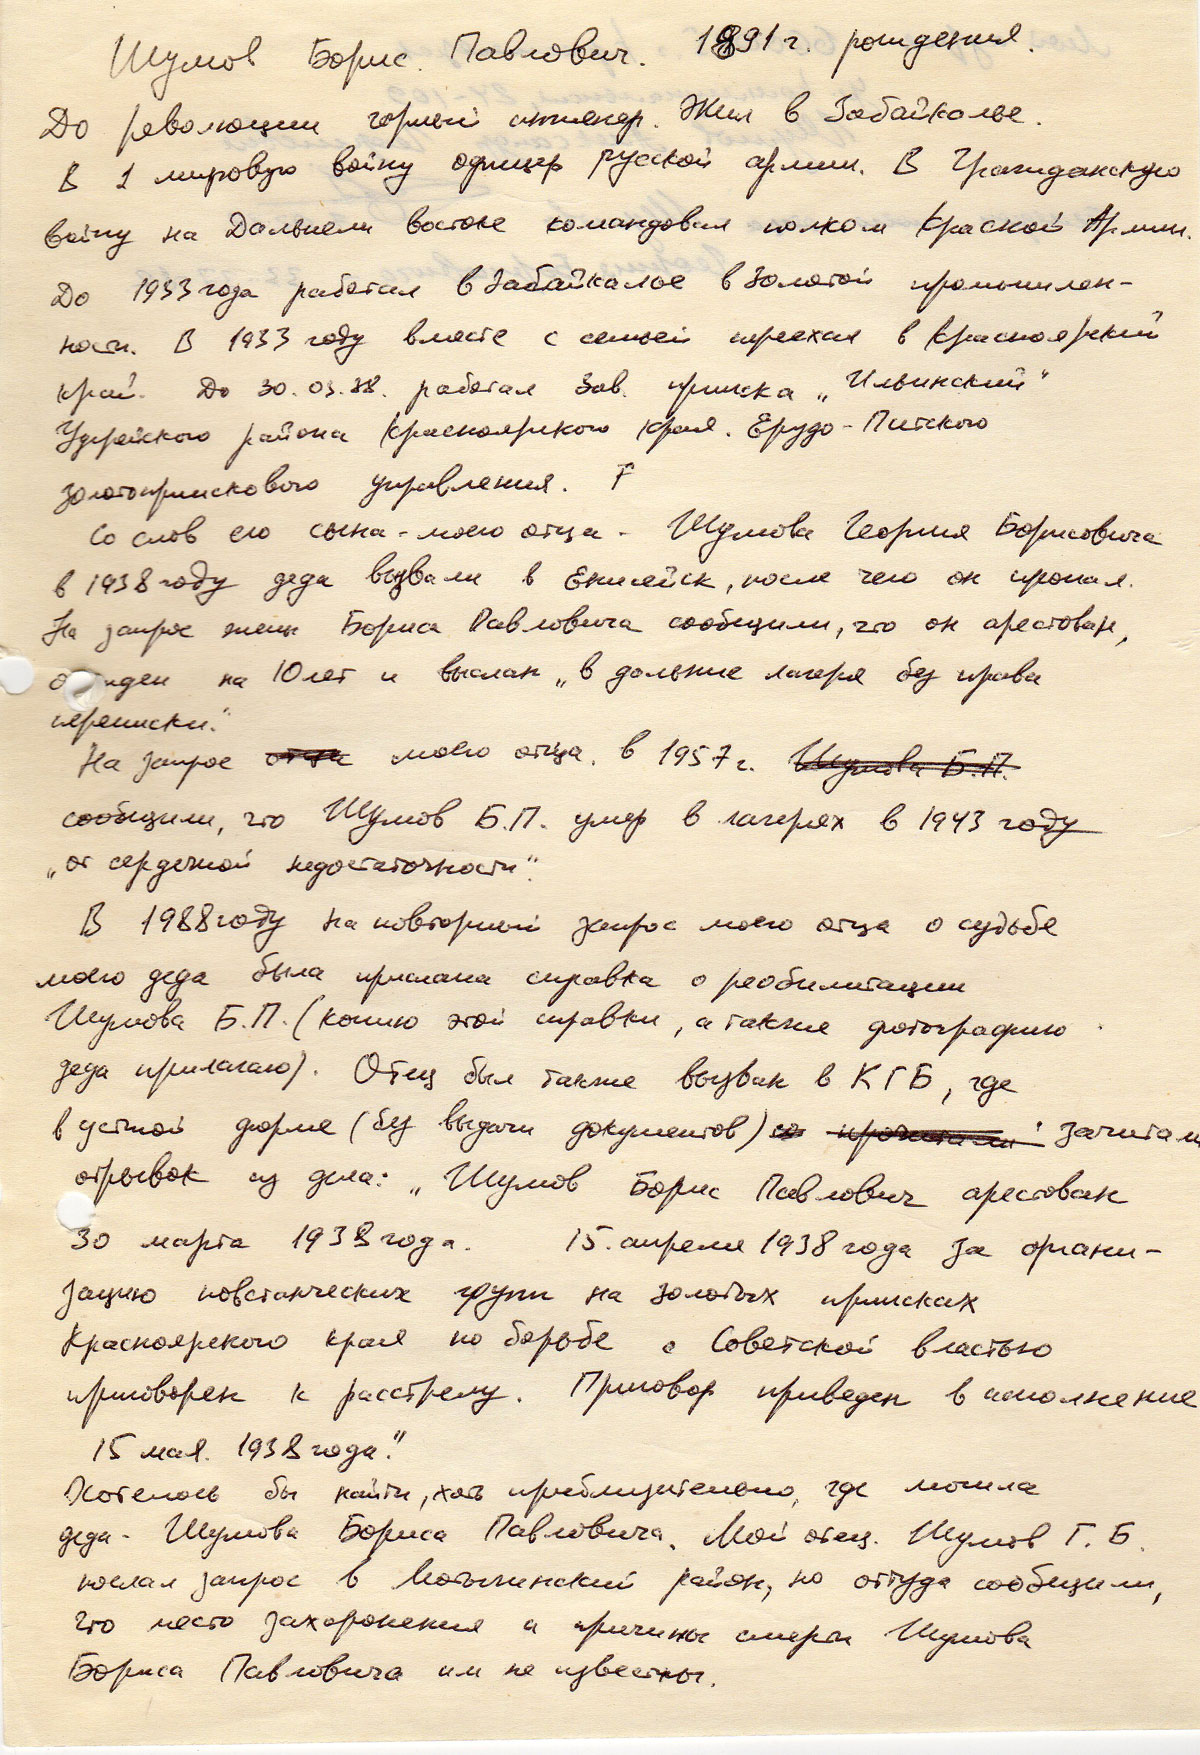 Шумов Борис Павлович. 1891 г. рождения.
До революции горный инженер. Жил в Забайкалье.
В 1 мировую войну офицер русской армии. В Гражданскую
войну на Дальнем востоке командовал полком Красной Армии.
До 1933 года работал в Забайкалье в золотой промышлен-
ности. В 1933 году вместе с семьей переехал в Красноярский
край. До 30.03.38. работал зав. прииска „Ильинский"
Удерейского района Красноярского края. Ерудо-Питского
золотоприискового управления.
Со слов его сына - моего отца - Шумова Георгия Борисовича
в 1938 году деда вызвали в Енисейск, после чего он пропал.
На запрос жены Бориса Павловича сообщили, что он арестован,
осужден на 10 лет и выслан „в дальние лагеря без права
переписки."
На запрос отца моего отца. в 1957 г. Шумова Б.П.
сообщили, что Шумов Б.П. умер в лагерях в 1943 году
„от сердечной недостаточности".
В 1988 году на повторный запрос моего отца о судьбе
моего деда была прислана справка о реабилитации
Шумова Б.П. (копию этой справки, а также фотографию
деда прилагаю). Отец был также вызван в КГБ, где
в устной форме (без выдачи документов) прочитали зачитали
отрывок из дела: „Шумов Борис Павлович арестован
30 марта 1938 года. 15. апреля 1938 года за органи-
зацию повстанческих групп на золотых приисках
Красноярского края по борьбе с Советской властью
приговорен к расстрелу. Приговор приведен в исполнение
15 мая. 1938 года."
Хотелось бы найти, хоть приблизительно, где могила
деда - Шумова Бориса Павловича. Мой отец. Шумов Г. Б.
послал запрос в Мотыгинский район, но оттуда сообщили,
что место захоронения и причины смерти Шумова
Бориса Павловича им не известны.